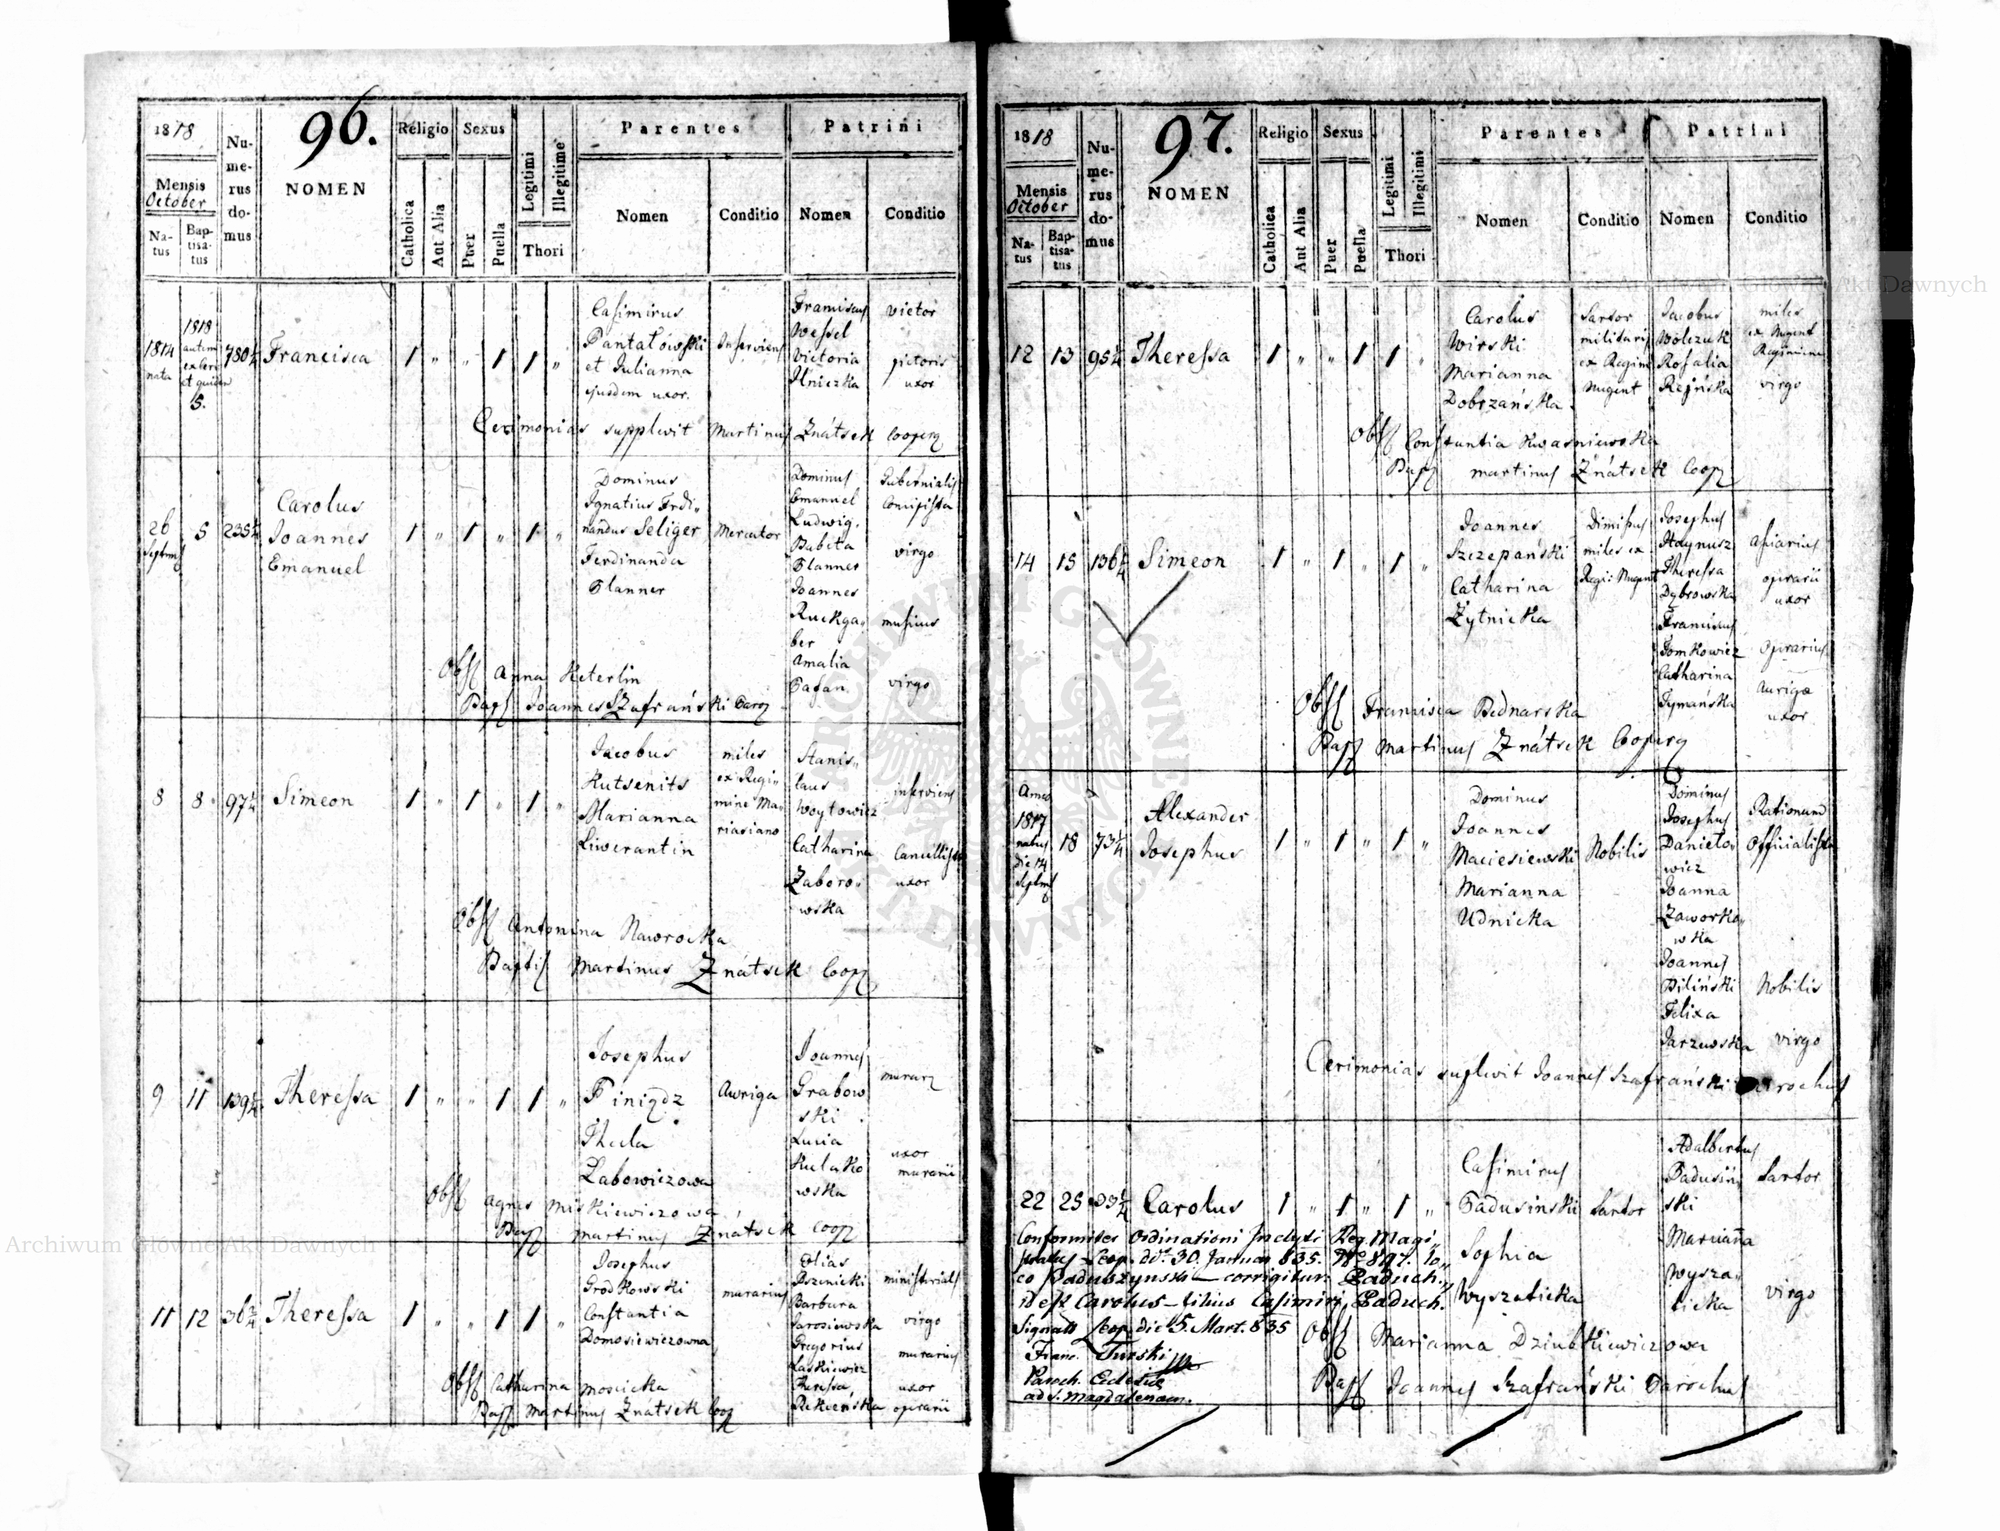 96.
1818
Mensis
October
Na-
tus
Bap-
tisa-
tus
Nu-
me-
rus
do-
mus
NOMEN
Religio
Catholica
Aut Alia
Sexus
Puer
Puella
Legitimi
Illegitime
Thori
Parentes
Nomen
Conditio
Patrini
Nomen
Conditio
1814
nata
1818
5.
780¼
Francisca
1 „ „ 1 1 „
Casimirus
Pantatowski
et Julianna
ejusdem uxor.
Inserviens
Franciscus
Wessel
Victoria
Ilniczka
vietor
pictoris
uxor
Cerimonias supplevit Martinus Znátsek Cooper
26
Septem
5
235¼
Carolus
Joannes
Emanuel
1 „ 1 „ 1 „
Dominus
Ignatius Ferdi„
nandus Seliger
Ferdinanda
Planner
Mercator
Dominus
Emanuel
Ludwig.
Babeta
Planner
Joannes
Ruckga„
ber
Amalia
Gubernialis
virgo
musicus
virgo
Obst Anna Keterlin
Bap Joannes Szafrański Paro
8
8.
97¼
Simeon
1 „ 1 „ 1 „
Jacobus
Kutsenits
Marianna
Liwerantin
miles
ex Regi„
mine Ma„
riasiano
Stanis„
laus
Woytowicz
Catharina
Zaboro„
wska
inserviens
Cancellista
uxor
Obst Antonina Nawrocka
Baptis Martinus Znátsek Coop
9
11
139¼
Theressa
1 „ „ 1 1 „
Josephus
Piniądz
Thecla
Labowiczowa
Auriga
Joannes
Grabow
ski
Lucia
Kulako
wska
murar
uxor
murarii
Obst Agnes Miskiewiczowa
Bap Martinus Znátsek Coop
11
12
36¾
Theressa
1 „ „ 1 1 „
Josephus
Grodkowski
Constantia
Domosiewiczowna
murarius
Elias
Barbara
Jarosiewska
Gregorius
Laskiewicz
Theressa
ministerialis
virgo
murarius
uxor
operarii
Obst Catharina Moscicka
Bap Martinus Znatsek Coop
97.
1818
Mensis
October
Na-
tus
Bap-
tisa-
tus
Nu-
me-
rus
do-
mus
NOMEN
Religio
Catholica
Aut Alia
Sexus
Puer
Puella
Legitimi
Illegitimi
Thori
Parentes
Nomen
Conditio
Patrini
Nomen
Conditio
12
13
95¼
Theressa
1 „ „ 1 1 „
Carolus
Wirski
Marianna
Dobrzańska
Sartor
militaris
ex Regime
Nugent
Jacobus
Wolczuk
Rosalia
Reińska
miles
ex Nugent
Regimine
virgo
Obst Constantia Kwasniewska
Bap Martinus Znátsek Coop
14
15
136¼
Simeon
1 „ 1 „ 1 „
Joannes
Szczepański
Catharina
Zytnicka
Dimissus
miles ex
Regi: Nugent
Josephus
Haynusz
Theressa
Dybrowska
Franciscus
Tomkowicz
Catharina
Tymańska
operarii
uxor
operarius
Auriga
uxor
Obst Francisca Bednarska
Bap Martinus Znátsek Cooper
Anno
1817
natus
die 14
Septem
18
73¼
Alexander
Josephus
1 „ 1 „ 1 „
Dominus
Joannes
Maciesiewski
Marianna
Udnicka
Nobilis
Dominus
Josephus
Danielo„
wicz
Joanna
Zaworko„
wska
Joannes
Biliński
Felixa
Jarzewska
Rationum
Officialista
Nobilis
virgo
Cerimonias suplevit Joannes Szafrański Parochus
22
25
Carolus
1 „ 1 „ 1 „
Casimirus
Padusinski
Sophia
Wyszaticka
Sartor
Adalbertus
Padusiń
ski
Marianna
Wysza„
ticka
Sartor
virgo
Conformiter Ordinationi Inclyti Reg. Magi„
stratus Leop. ddt 30. Januar 835. No 897. lo„
co Paduszynski – corrigitur: Paduch.„
id est Carolus – filius Casimiri Paduch.
Signatt Leop. die 5. Mart. 835
Franc. Turski
Paroch. Eccles
ad S. Magdalenam.
Obst Marianna Dziubkiewiczowa
Bap Joannes Szafrański Parochus
Archiwum Główne Akt Dawnych
Archiwum Główne Akt Dawnych
ARCHIWUM GŁÓWNE AKT DAWNYCH